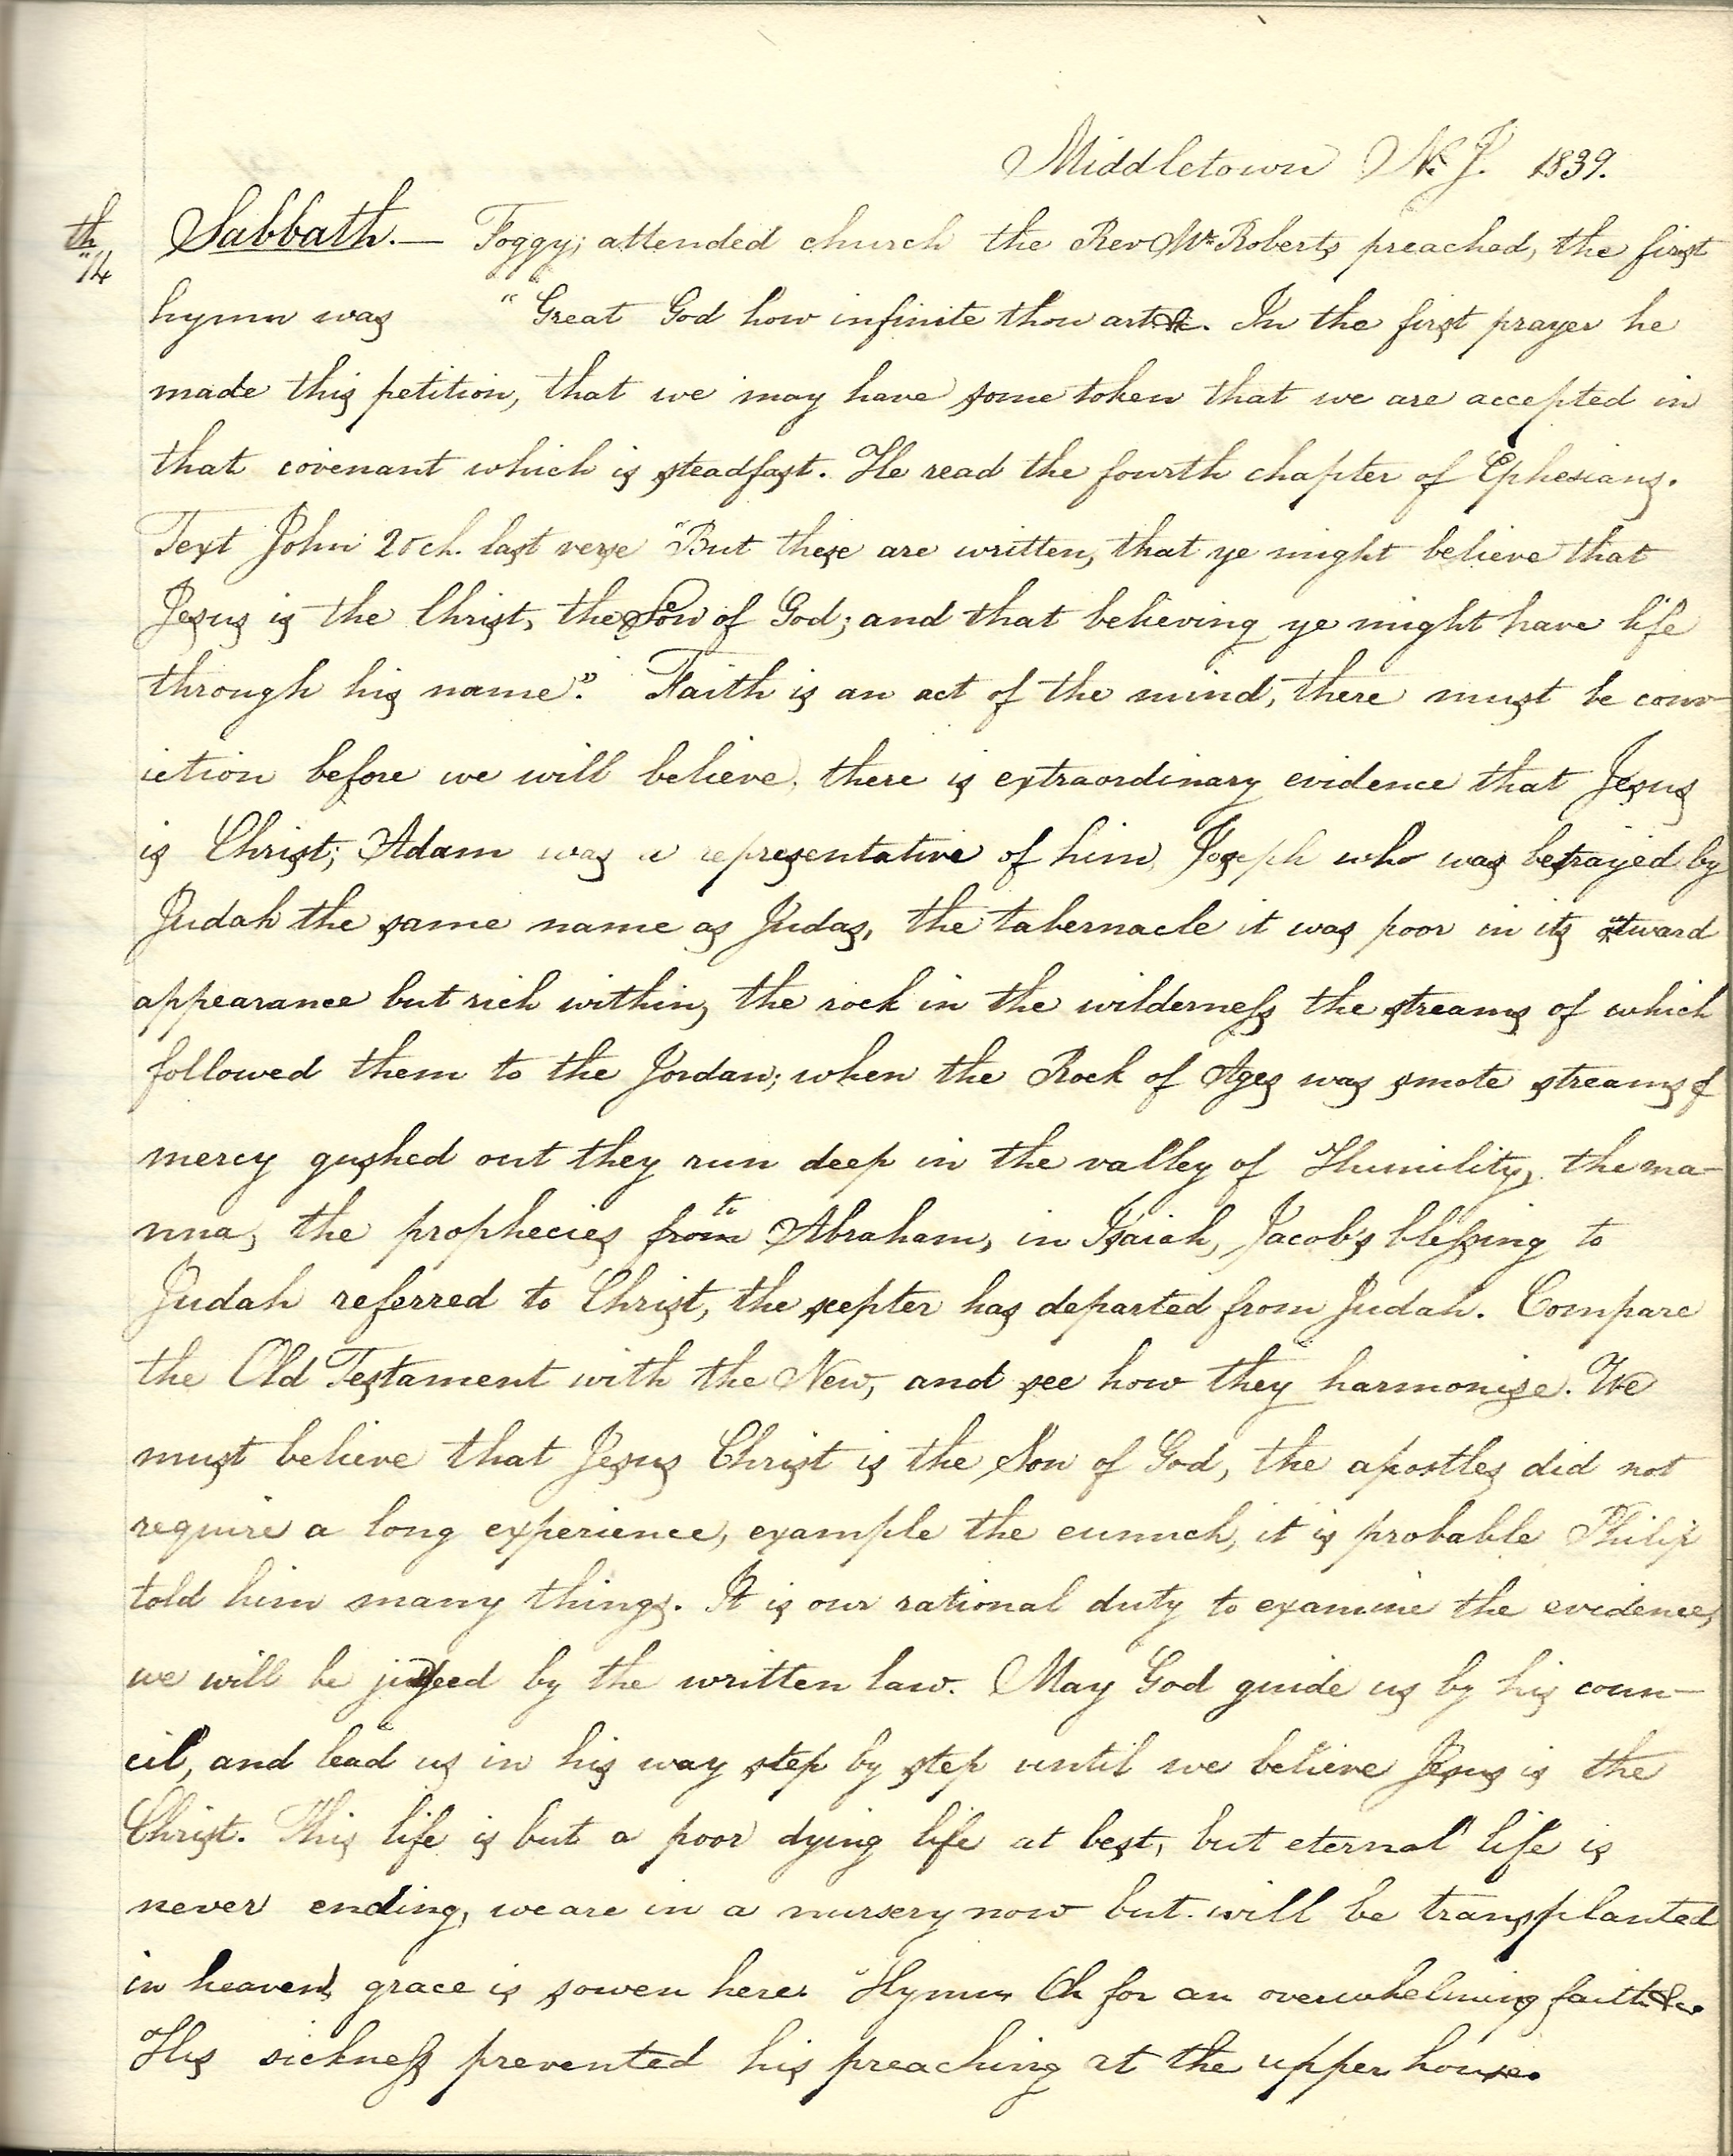 Middletown N. J. 1839.
14th Sabbath.— Foggy; attended church the Rev Mr Roberts preached, the first
hymn was "Great God how infinite thou art &c. In the first prayer he
made this petition, that we may have some token that we are accepted in
that covenant which is steadfast. He read the fourth chapter of Ephesians.
Text John 20 ch. last verse "But these are written, that ye might believe that
Jesus is the Christ, the Son of God; and that believing ye might have life
through his name". Faith is an act of the mind, there must be conv-
iction before we will believe, there is extraordinary evidence that Jesus
is Christ; Adam was a representative of him, Joseph who was betrayed by
Judah the same name as Judas, the tabernacle it was poor in its outward
appearance but rich within, the rock in the wilderness the streams of which
followed them to the Jordan; when the Rock of Ages was smote streams of
mercy gushed out they run deep in the valley of Humility, the ma-
nna, the prophecies from to Abraham, in Isaiah, Jacob's blessing to
Judah referred to Christ, the scepter has departed from Judah. Compare
the Old Testament with the New, and see how they harmonise. We
must believe that Jesus Christ is the Son of God, the apostles did not
require a long experience, example the eunuch, it is probable Philip
told him many things. It is our rational duty to examine the evidence,
we will be judged by the written law. May God guide us by his coun-
cil, and lead us in his way step by step until we believe Jesus is the
Christ. This life is but a poor dying life at best, but eternal life is
never ending, we are in a nursery now but will be transplanted
in heaven, grace is sowen here. "Hymn Oh for an overwhelming faith &c.
His sickness prevented his preaching at the upper house.